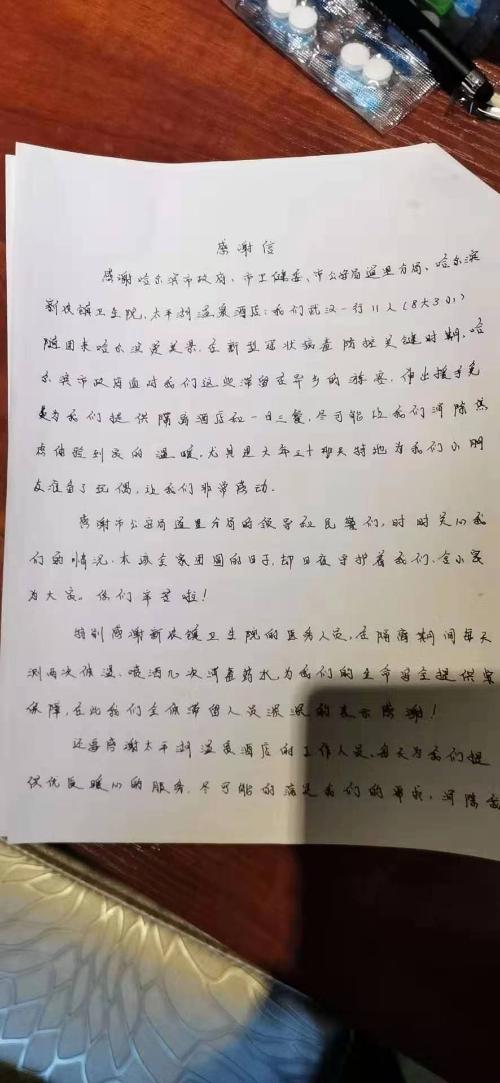 感谢信
感谢哈尔滨市政府、市卫健委、市公安局道里分局、哈尔滨
新农镇卫生院、太平湖温泉酒店:我们武汉一行11人(8大3小)
随团来哈尔滨赏美景,在新型冠状病毒防控关键时期,哈
尔滨市政府面对我们这些滞留在异乡的旅客,伸出援手免
为我们提供隔离酒店和一日三餐,尽可能让我们消除焦
虑体验到家的温暖,尤其是大年三十那天特地为我们小朋
友准备了玩偶,让我们非常感动.
感谢市公安局道里分局的领导和民警们,时时关心我
们的情况,本该全家团圆的日子,却日夜守护着我们,舍小家
为大家。你们辛苦啦!
特别感谢新农镇卫生院的医务人员,在隔离期间每天
测两次体温、喷洒几次消毒药水,为我们的生命安全提供
保障,在此我们全体滞留人员深深的表示感谢!
还要感谢太平湖温泉酒店的工作人员,每天为我们提
供优质暖心的服务,尽可能的满足我们的需求,消除我